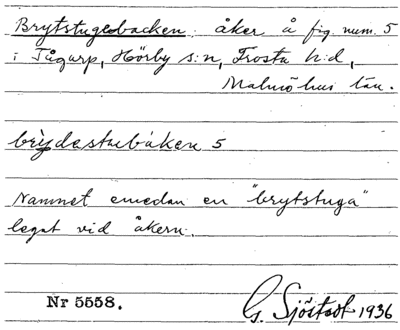 Brytstugebacken. åker å fig. num. 5
i Tågarp, Hörby s:n, Frosta h:d,
Malmöhus län.
brỳdestubáken 5
Namnet emedan en "brytstuga"
legat vid åkern.
Nr 5558.
G. Sjöstedt 1936